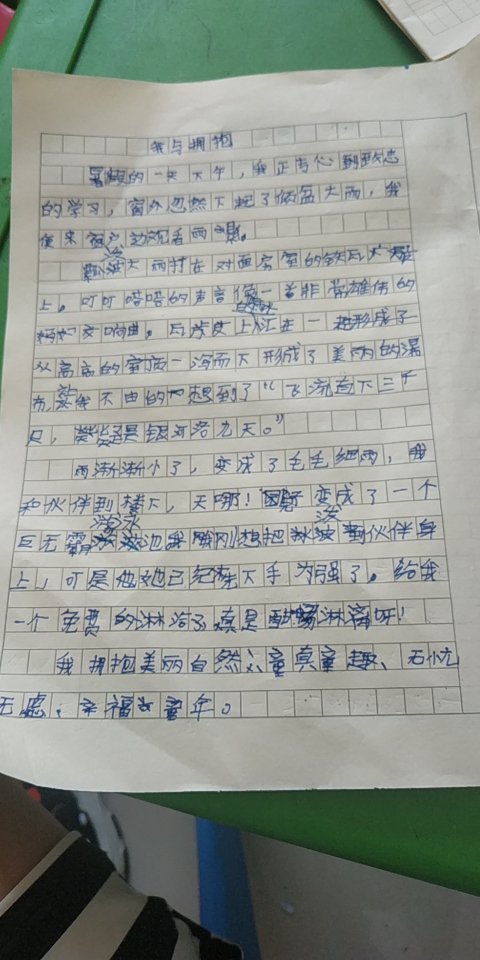 我与拥抱
暑假的一天下午，我正专心致志
的学习，窗外忽然下起了倾盆大雨，我
便来窗户边沉看雨
大雨打在对面房屋的铁瓦
上。叮叮嗒嗒的声音像一首非常雄伟的
交响曲。瓦房上雨水汇在一起形成了
从高高的屋顶一泻而下形成了美丽的瀑
布，我不由的想到了“飞流直下三千
尺，疑是银河落九天。”
雨渐渐小了，变成了毛毛细雨，我
和伙伴到楼下，天哪！院子变成了一个
巨无霸游泳池。我刚想把水泼到伙伴身
上，可是他她已经先下手为强了。给我
一个免费的淋浴了，真是酣畅淋漓呀！
我拥抱美丽自然、童真童趣、无忧
无虑、幸福童年。